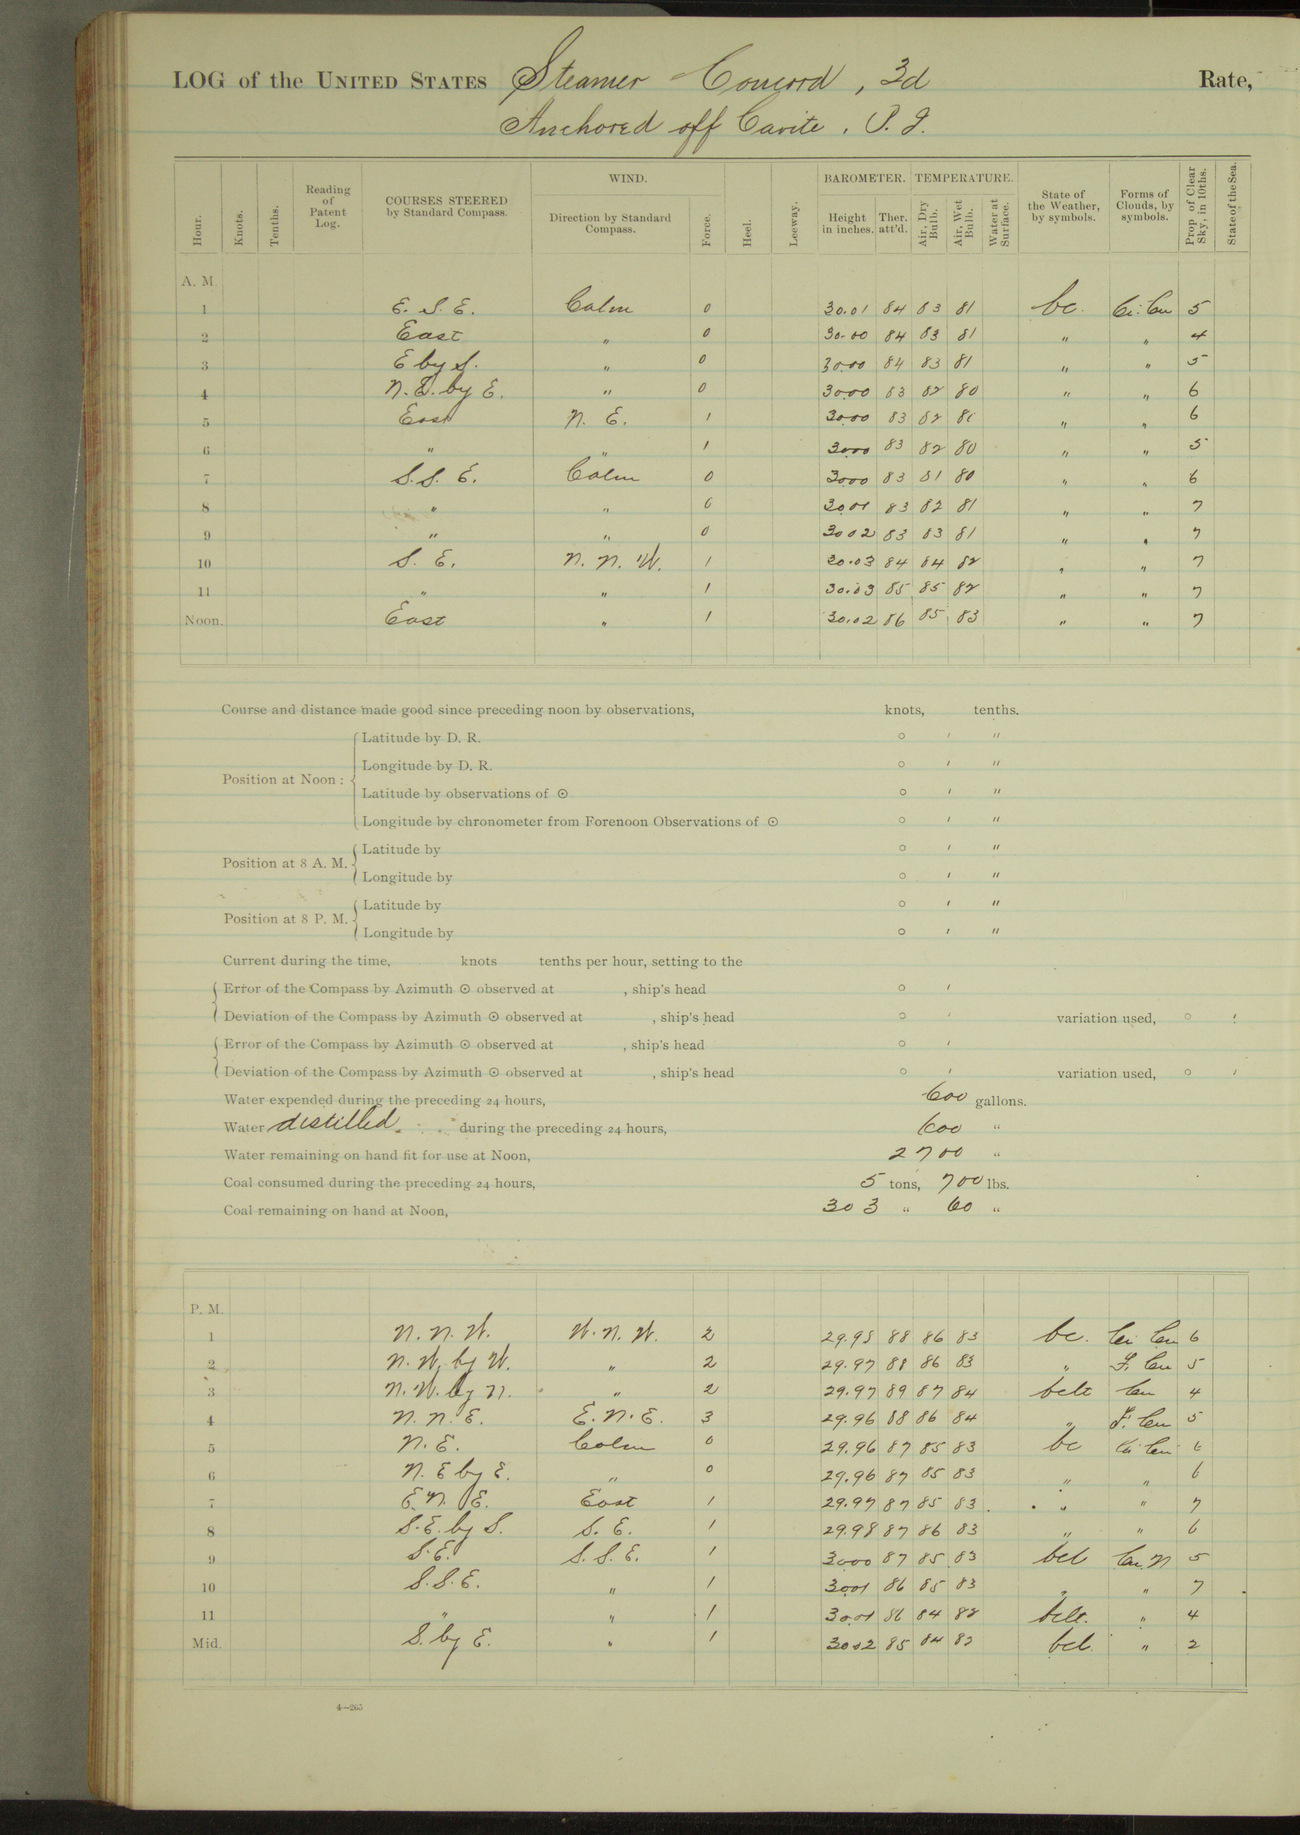 LOG of the UNITED STATES Steamer Concord, 3d Rate,
Anchored off Cavite, P. I.
Hour. Knots. Tenths. Reading of Patent Log. COURSES STEERED by Standard Compass. WIND. Direction by Standard Compass. Force. Heel. Leeway. BAROMETER. Height in inches. Ther. att'd. TEMPERATURE. Air, Dry Bulb. Air, Wet Bulb. Water at Surface. State of the Weather, by symbols. Forms of Clouds, by symbols. Prop. of Clear Sky, in 10ths. State of the Sea.
A. M.
1 E. S. E. Calm 0 30.01 84 83 81 bc. Ci. Cu 5
2 East " 0 30.00 84 83 81 " " 4
3 E by S. " 0 30.00 84 83 81 " " 5
4 N. E. by E. " 0 30.00 83 82 80 " " 6
5 East N. E. 1 30.00 83 82 " " 6
6 " " 1 30.00 83 82 80 " " 5
7 S. S. E. Calm 0 30.00 83 81 80 " " 6
8 " " 0 30.01 83 82 81 " " 7
9 " " 0 30.02 83 83 81 " " 7
10 S. E. N. N. W. 1 30.03 84 84 82 " " 7
11 " " 1 30.03 85 85 82 " " 7
Noon. East " 1 30.02 86 85 83 " " 7
Course and distance made good since preceding noon by observations, knots, tenths.
Position at Noon: Latitude by D. R. ° ′ ″
Longitude by D. R. ° ′ ″
Latitude by observations of ☉ ° ′ ″
Longitude by chronometer from Forenoon Observations of ☉ ° ′ ″
Position at 8 A. M. Latitude by ° ′ ″
Longitude by ° ′ ″
Position at 8 P. M. Latitude by ° ′ ″
Longitude by ° ′ ″
Current during the time, knots tenths per hour, setting to the
Error of the Compass by Azimuth ☉ observed at , ship's head ° ′
Deviation of the Compass by Azimuth ☉ observed at , ship's head ° ′ variation used, ° ′
Error of the Compass by Azimuth ☉ observed at , ship's head ° ′
Deviation of the Compass by Azimuth ☉ observed at , ship's head ° ′ variation used, ° ′
Water expended during the preceding 24 hours, 600 gallons.
Water distilled during the preceding 24 hours, 600 "
Water remaining on hand fit for use at Noon, 2700 "
Coal consumed during the preceding 24 hours, 5 tons, 700 lbs.
Coal remaining on hand at Noon, 303 " 60 "
P. M.
1 N. N. W. W. N. W. 2 88 86 83 bc. Ci. Cu 6
2 N. W. by W. " 2 29.97 88 86 83 " F. Cu 5
3 N. W. by N. " 2 29.97 89 87 84 bclt Cu 4
4 N. N. E. E. N. E. 3 29.96 88 86 84 " F. Cu 5
5 N. E. Calm 0 29.96 87 85 83 bc Ci Cu 6
6 N. E by E. " 0 29.96 87 85 83 " " 6
7 E. N. E. East 1 29.97 87 85 83 " " 7
8 S. E. by S. S. E. 1 29.98 87 86 83 " " 6
9 S. E. S. S. E. 1 30.00 87 85 83 bcl Cu. N 5
10 S. S. E. " 1 30.01 86 85 83 " " 7
11 " " 1 30.01 86 84 82 bclt. " 4
Mid. S. by E. " 1 30.02 85 84 82 bcl. " 2
4—265